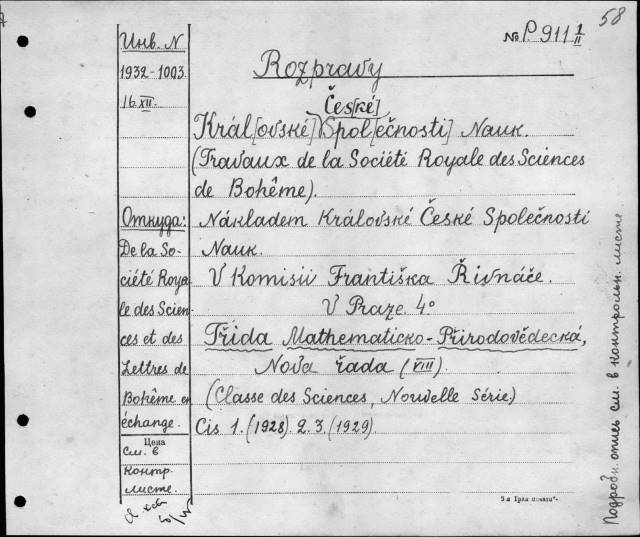 58
№ P. 911 1/II
Инв. N
1932-1003
16 XII.
Rozpravy
Čes[ké]
Král[ovské] Spol[ečnosti] Nauk.
(Travaux de la Société Royale des Sciences
de Bohême).
Откуда:
De la So-
ciété Roya-
le des Scien-
ces et des
Lettres de
Bohême en
échange.
Nákladem Královské České Společnosti
Nauk.
V Komisii Františka Řivnáče.
V Praze. 4°
Třída Mathematicko-Přírodovědecká,
Nova řada (VIII)
(Classe des Sciences, Nouvelle Série)
Čis 1. (1928). 2. 3. (1929).
Цена
см. в
контр.
листе.
Подробн. опись см. в контрольн. листе